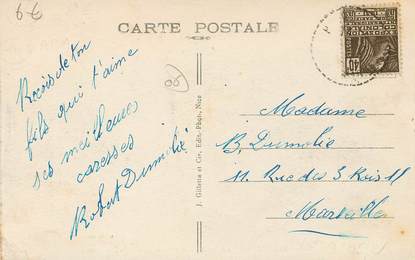 6€
CARTE POSTALE
05
Reçois de ton
fils qui t'aime
ses meilleures
caresses
Robert Dumolié
J. Gilletta et Cie, Edit.-Phot., Nice
Madame
B. Dumolié
11. Rue des 3 Rois 11
Marseille